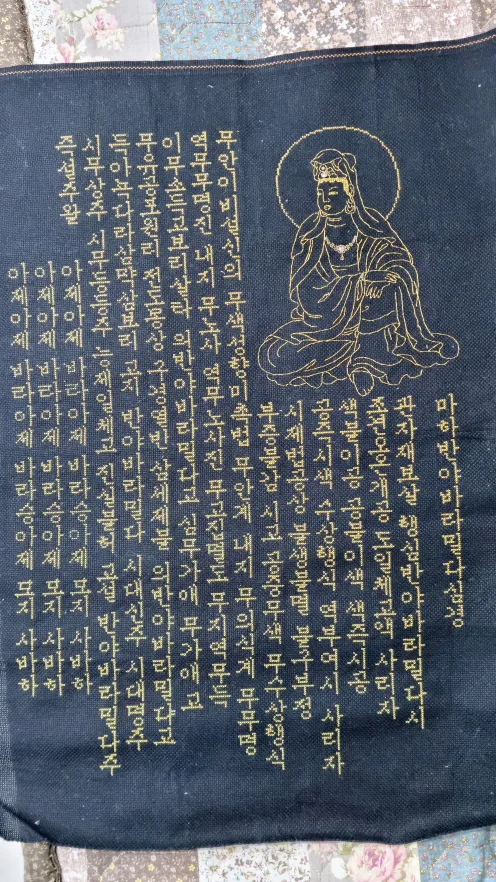 마하반야바라밀다심경
관자재보살 행심반야바라밀다시
조견오온개공 도일체고액 사리자
색불이공 공불이색 색즉시공
공즉시색 수상행식 역부여시 사리자
시제법공상 불생불멸 불구부정
부증불감 시고 공중무색 무수상행식
무안이비설신의 무색성향미촉법 무안계 내지 무의식계 무무명
역무무명진 내지 무노사 역무노사진 무고집멸도 무지역무득
이무소득고 보리살타 의반야바라밀다고 심무가애 무가애고
무유공포 원리 전도몽상 구경열반 삼세제불 의반야바라밀다고
득아뇩다라삼먁삼보리 고지 반야바라밀다 시대신주 시대명주
시무상주 시무등등주 능제일체고 진실불허 고설 반야바라밀다주
즉설주왈 아제아제 바라아제 바라승아제 모지 사바하
아제아제 바라아제 바라승아제 모지 사바하
아제아제 바라아제 바라승아제 모지 사바하